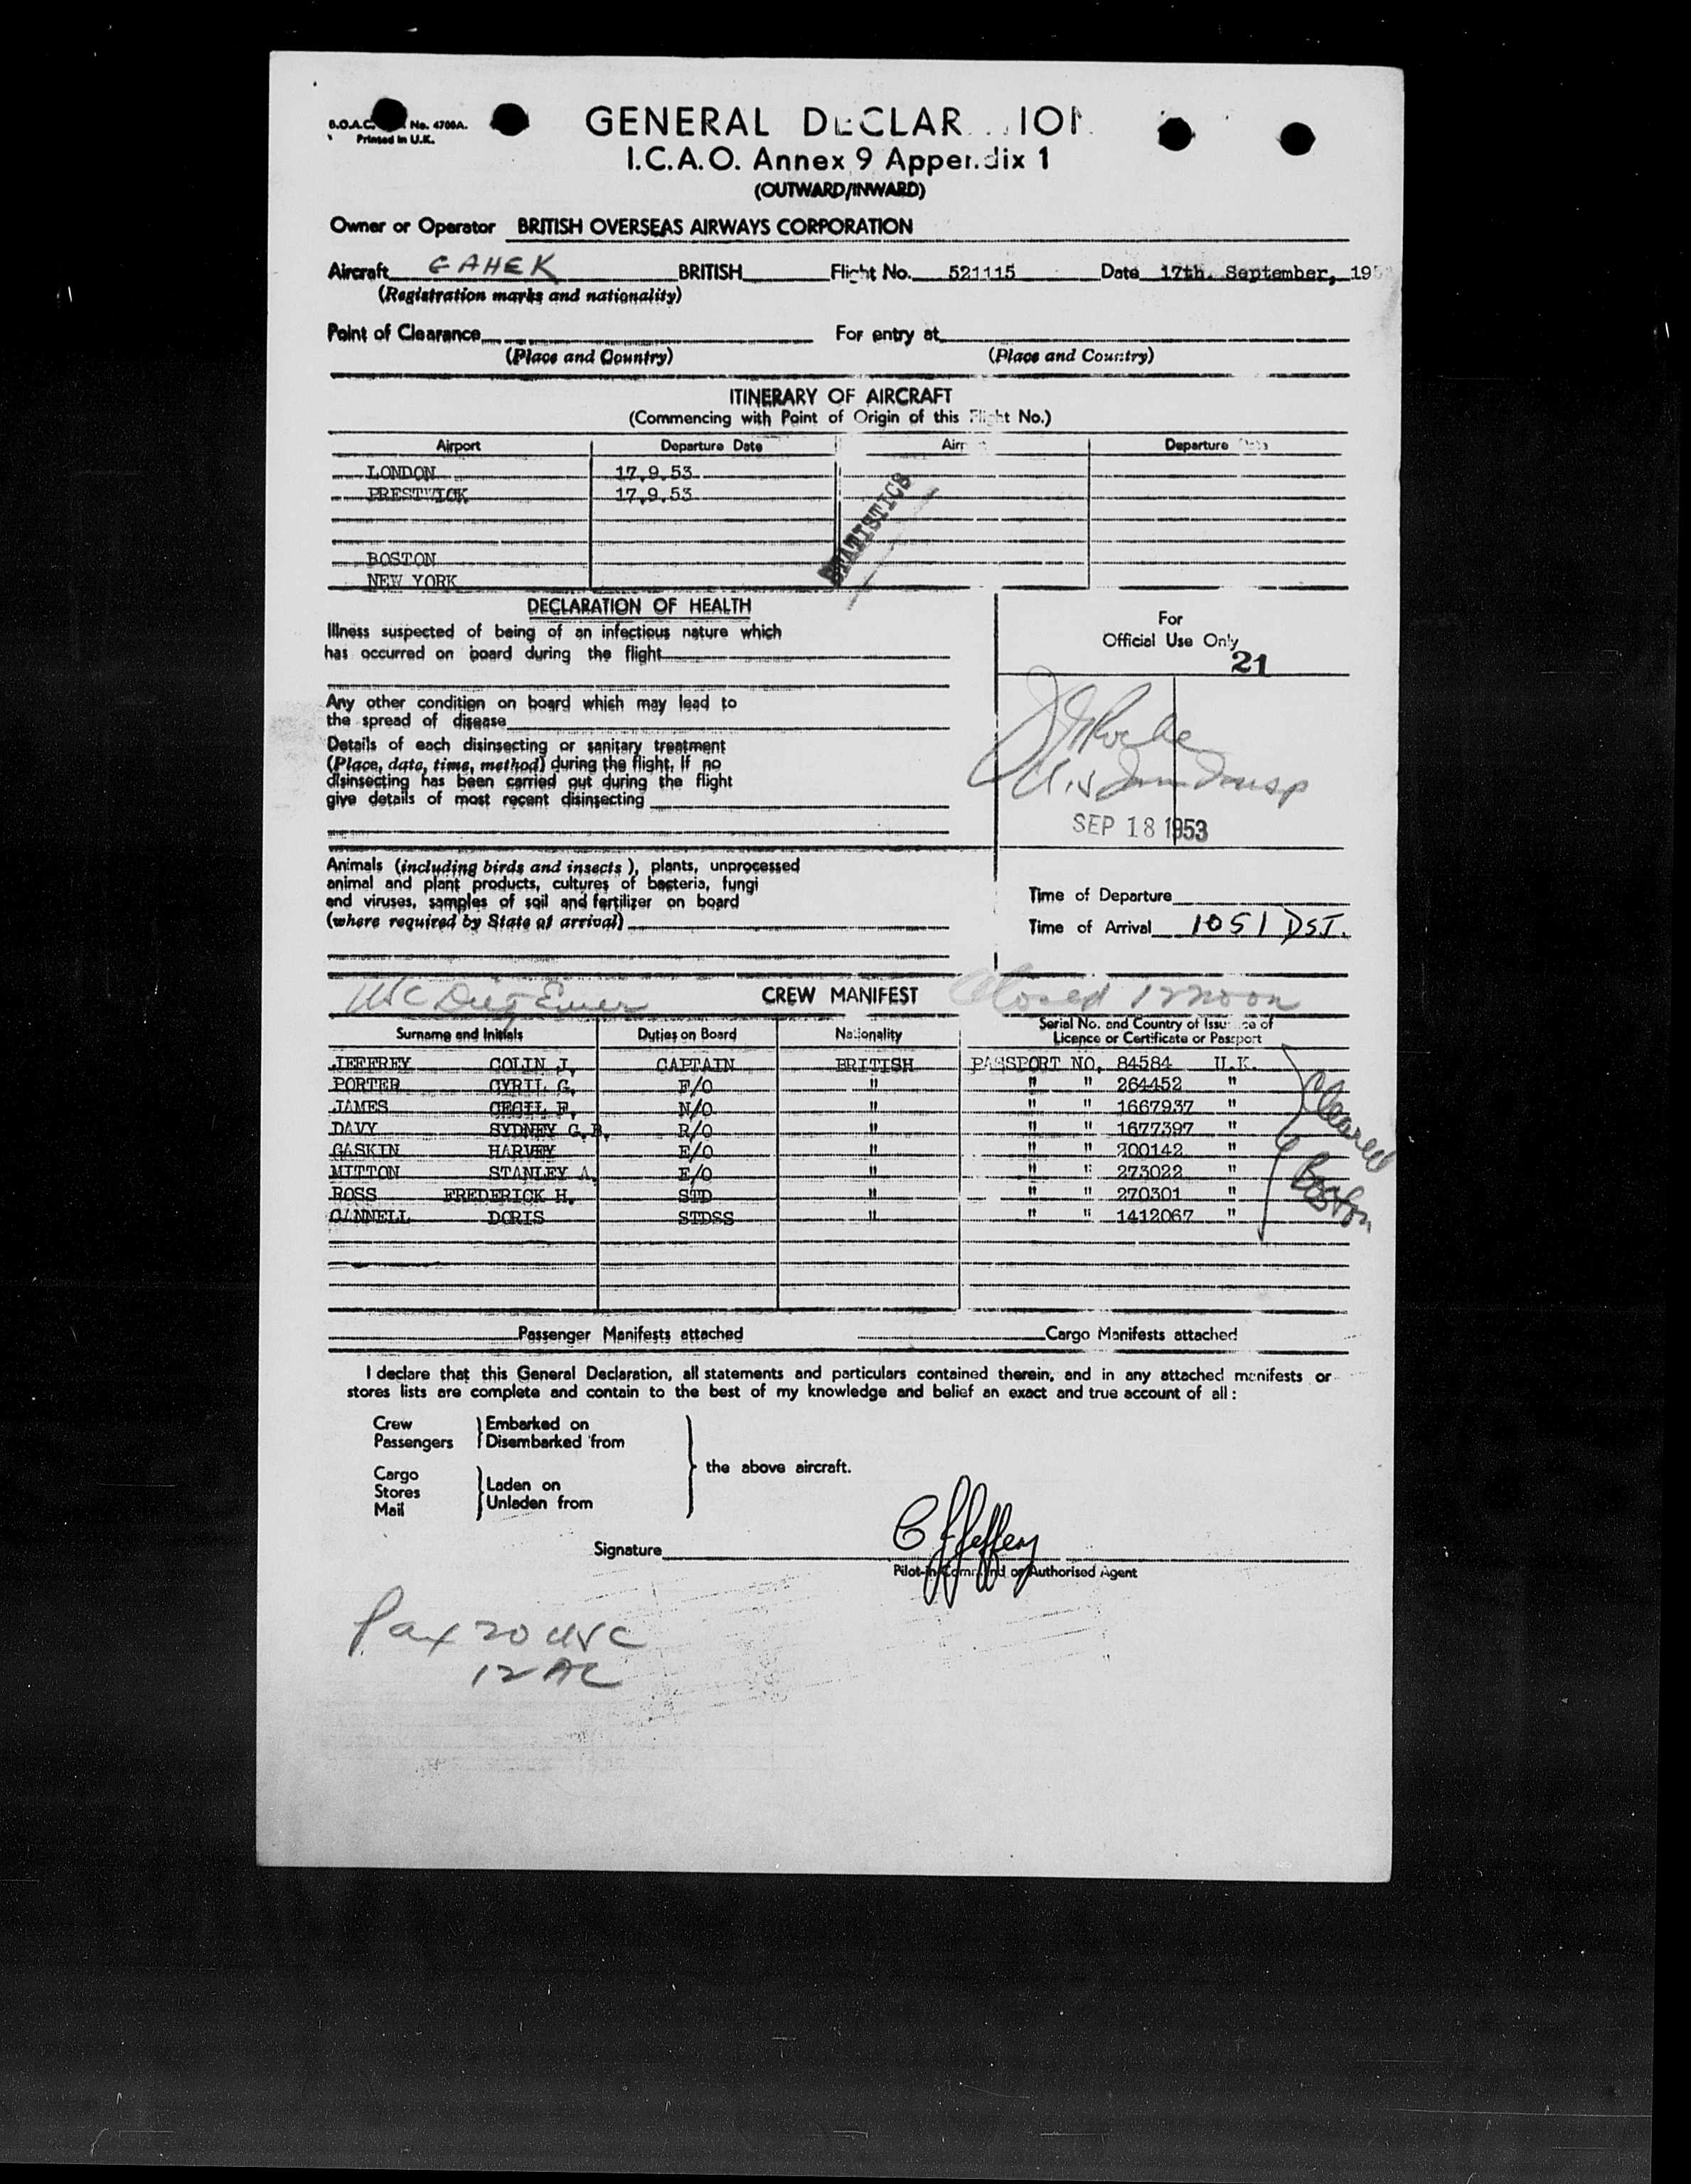 B.O.A.C. No. 4700A.
Printed in U.K.
GENERAL DECLARATION
I.C.A.O. Annex 9 Appendix 1
(OUTWARD/INWARD)
Owner or Operator BRITISH OVERSEAS AIRWAYS CORPORATION
Aircraft GAHEK BRITISH Flight No. 521115 Date 17th. September, 195
(Registration marks and nationality)
Point of Clearance For entry at
(Place and Country) (Place and Country)
ITINERARY OF AIRCRAFT
(Commencing with Point of Origin of this Flight No.)
Airport Departure Date Airport Departure Date
LONDON 17.9.53
PRESTWICK 17.9.53
STATISTICS
BOSTON
NEW YORK
DECLARATION OF HEALTH
Illness suspected of being of an infectious nature which
has occurred on board during the flight
Any other condition on board which may lead to
the spread of disease
Details of each disinsecting or sanitary treatment
(Place, date, time, method) during the flight. If no
disinsecting has been carried out during the flight
give details of most recent disinsecting
Animals (including birds and insects), plants, unprocessed
animal and plant products, cultures of bacteria, fungi
and viruses, samples of soil and fertilizer on board
(where required by State of arrival)
For
Official Use Only
21
SEP 18 1953
Time of Departure
Time of Arrival 1051 DST.
CREW MANIFEST Closed 12 noon
Surname and Initials Duties on Board Nationality Serial No. and Country of Issuance of
Licence or Certificate or Passport
JEFFREY COLIN J. CAPTAIN BRITISH PASSPORT NO. 84584 U.K.
PORTER CYRIL G. F/O " " " 264452 "
JAMES CECIL F. N/O " " " 1667937 "
DAVY SYDNEY G.B. R/O " " " 1677397 "
GASKIN HARVEY E/O " " " 200142 "
MITTON STANLEY A. E/O " " " 273022 "
ROSS FREDERICK H. STD " " " 270301 "
CANNELL DORIS STDSS " " " 1412067 "
Cleared
Boston
Passenger Manifests attached Cargo Manifests attached
I declare that this General Declaration, all statements and particulars contained therein, and in any attached manifests or
stores lists are complete and contain to the best of my knowledge and belief an exact and true account of all:
Crew Embarked on
Passengers Disembarked from
the above aircraft.
Cargo
Stores Laden on
Mail Unladen from
Signature C J Jeffery
Pilot-in-Command or Authorised Agent
Pax 20 USC
12 AC